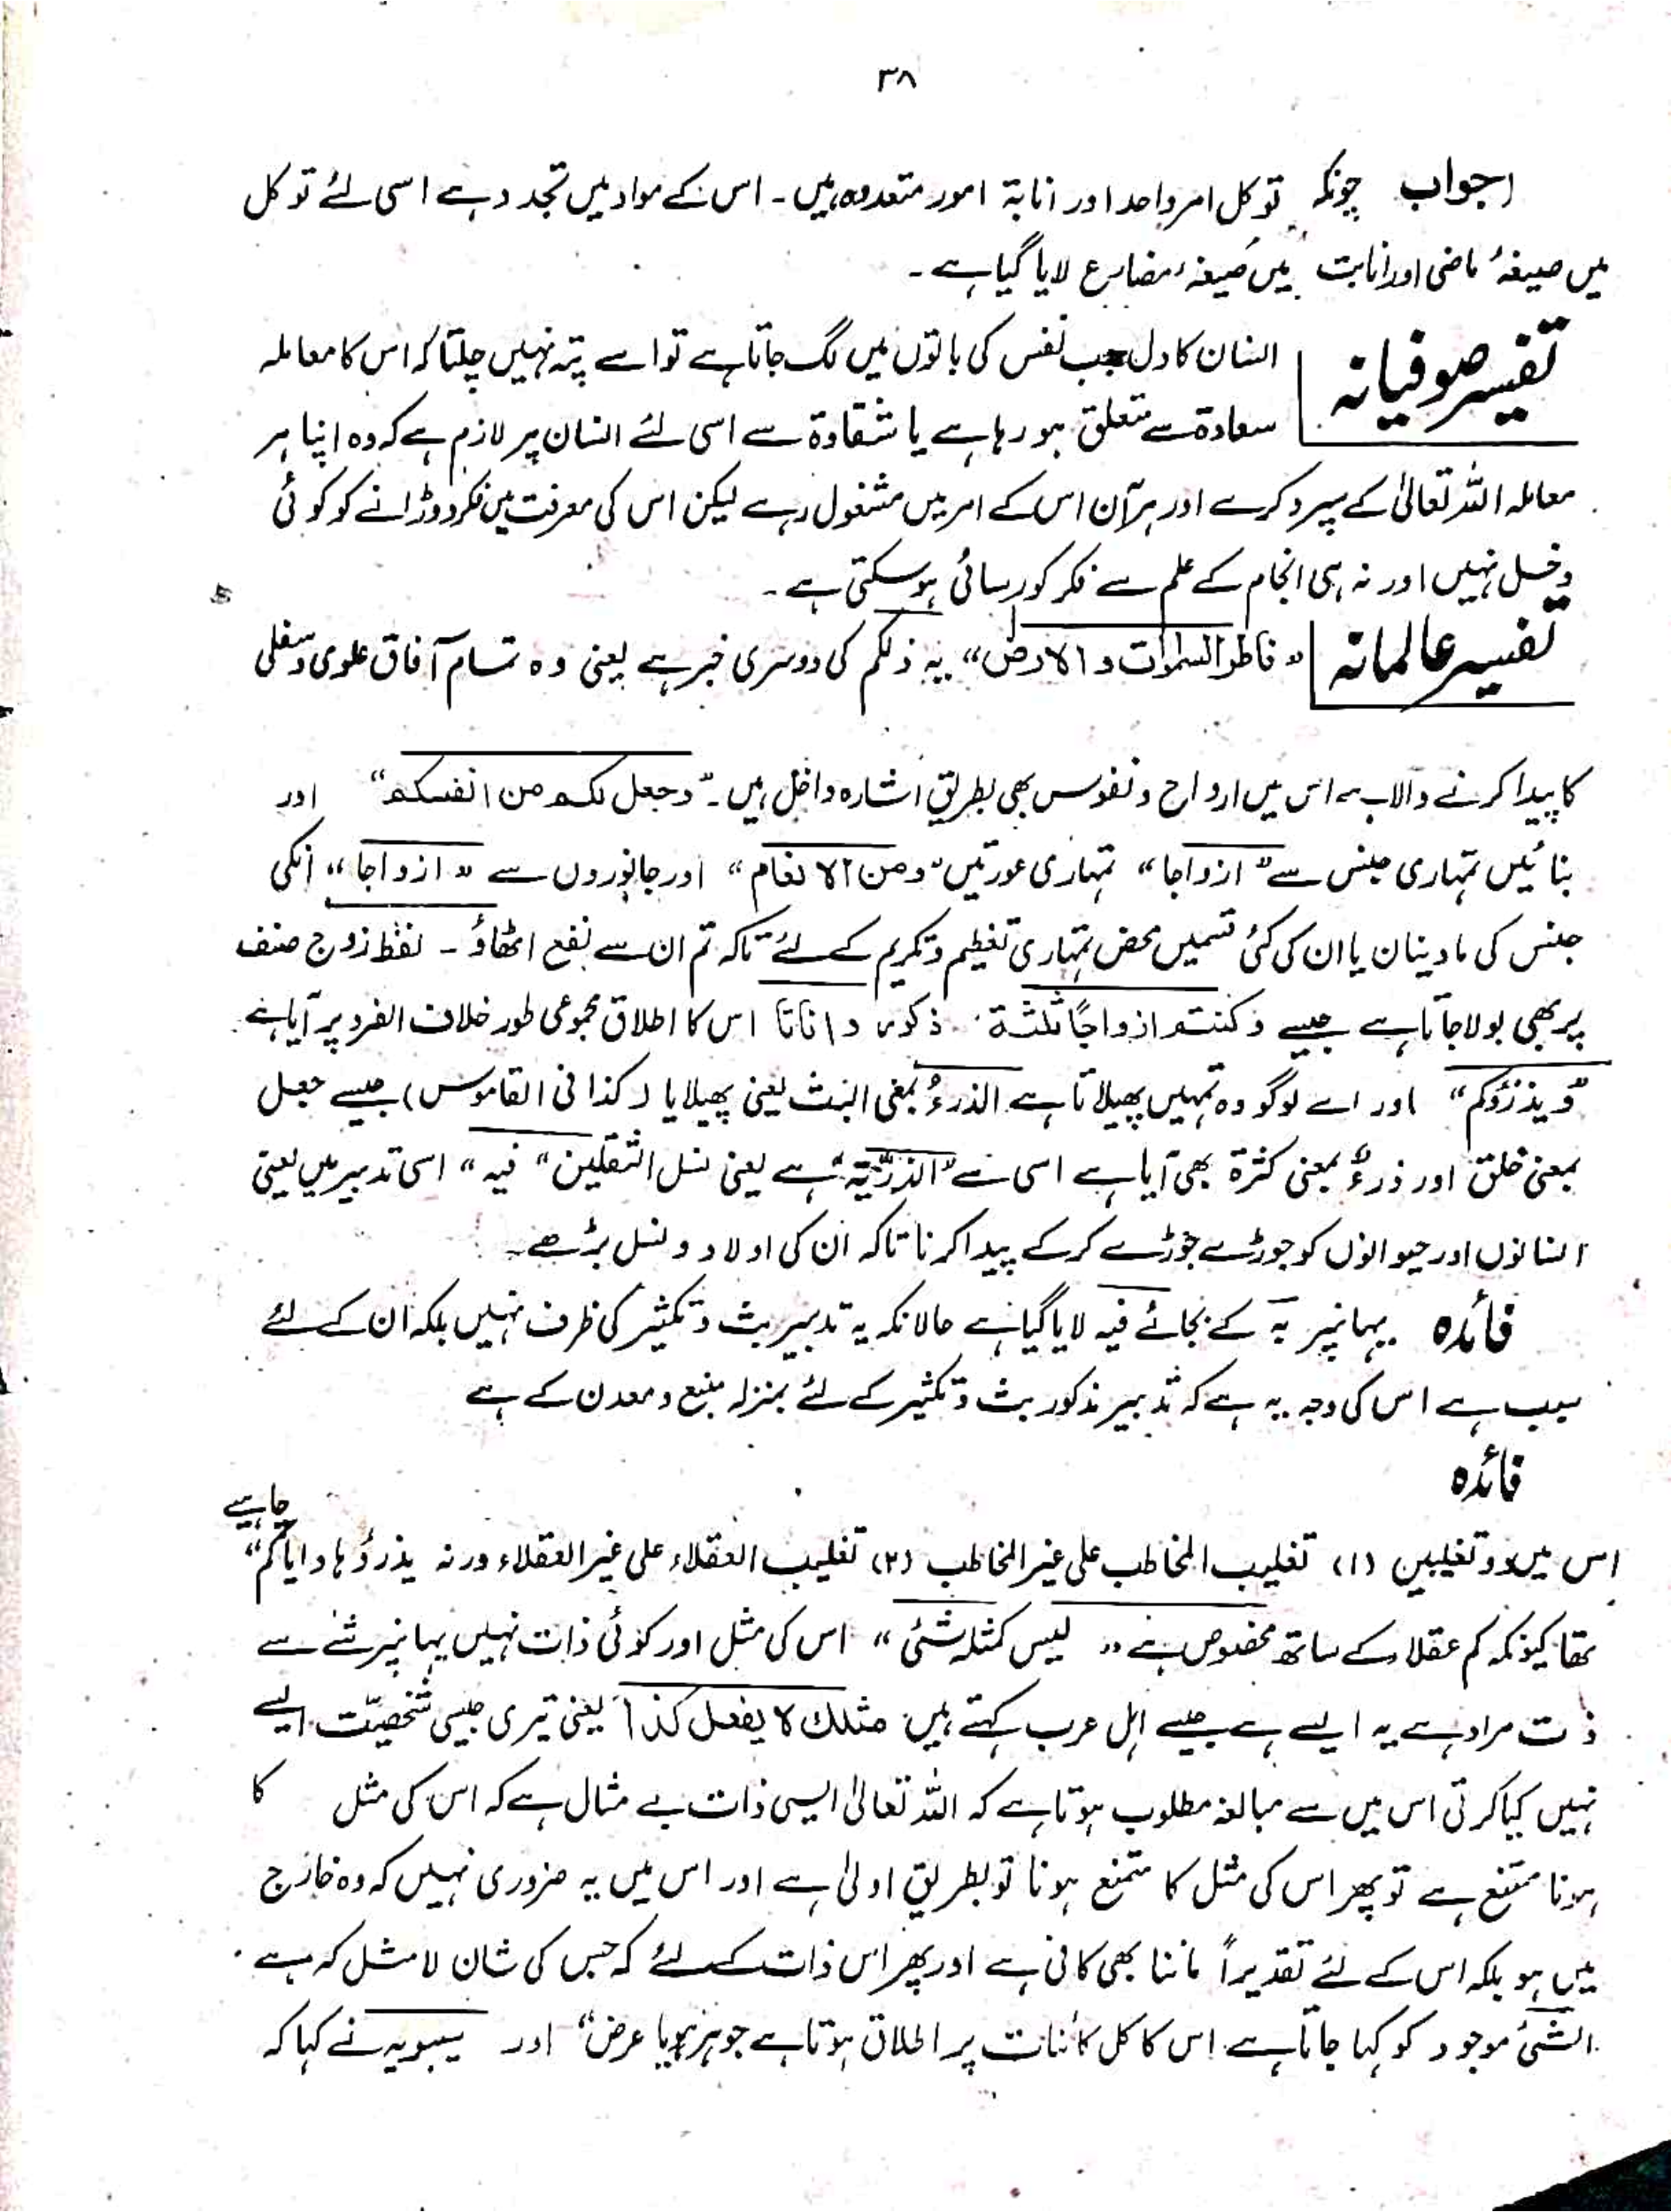 ۳۸
جواب چونکہ توکل امر واحد اور انابۃ امور متعددہ ہیں۔ اس کے مواد میں تجدد ہے اسی لئے توکل
میں صیغۂ ماضی اور انابت میں صیغۂ مضارع لایا گیا ہے۔
تفسیر صوفیانہ
انسان کا دل جب نفس کی باتوں میں لگ جاتا ہے تو اسے پتہ نہیں چلتا کہ اس کا معاملہ
سعادۃ سے متعلق ہو رہا ہے یا شقاوۃ سے اسی لئے انسان پر لازم ہے کہ وہ اپنا ہر
معاملہ اللہ تعالیٰ کے سپرد کرے اور ہر آن اس کے امر میں مشغول رہے لیکن اس کی معرفت میں فکر دوڑانے کو کوئی
دخل نہیں اور نہ ہی انجام کے علم سے فکر کو رسائی ہو سکتی ہے۔
تفسیر عالمانہ
”فاطر السمٰوات والارض“ یہ ذلکم کی دوسری خبر ہے یعنی وہ تمام آفاق علوی و سفلی
کا پیدا کرنے والا ہے اس میں ارواح و نفوس بھی بطریق اشارہ داخل ہیں۔ ”وجعل لکم من انفسکم“ اور
بنائیں تمہاری جنس سے ”ازواجا“ تمہاری عورتیں ”ومن الانعام“ اور جانوروں سے ”ازواجا“ انکی
جنس کی مادینان یا ان کی کئی قسمیں محض تمہاری تعظیم و تکریم کے لئے تاکہ تم ان سے نفع اٹھاؤ۔ لفظ زوج صنف
پر بھی بولا جاتا ہے جیسے وکنتم ازواجًا ثلثۃ۔ ذکورا واناثا اس کا اطلاق مجموعی طور خلاف الفرد پر آیا ہے۔
”ویذرؤکم“ اور اے لوگو وہ تمہیں پھیلاتا ہے الذرءُ بمعنی البث یعنی پھیلایا (کذا فی القاموس) جیسے جعل
بمعنی خلق اور ذرءٌ بمعنی کثرۃ بھی آیا ہے اسی سے ”الذرّیۃ“ ہے یعنی نسل الثقلین ”فیہ“ اسی تدبیر میں یعنی
انسانوں اور حیوانوں کو جوڑے جوڑے کرکے پیدا کرنا تاکہ ان کی اولاد و نسل بڑھے۔
فائدہ یہانپر بہ کے بجائے فیہ لایا گیا ہے حالانکہ یہ تدبیر بث و تکثیر کی ظرف نہیں بلکہ ان کے لئے
سبب ہے اس کی وجہ یہ ہے کہ تدبیر مذکور بث و تکثیر کے لئے بمنزلہ منبع و معدن کے ہے
فائدہ
چاہیے
اس میں دو تغلیبین (۱) تغلیب المخاطب علی غیر المخاطب (۲) تغلیب العقلاء علی غیر العقلاء ورنہ یذرؤہا وایاکم“
تھا کیونکہ کم عقلاء کے ساتھ مخصوص ہے ”لیس کمثلہ شئی“ اس کی مثل اور کوئی ذات نہیں یہانپر شئے سے
ذات مراد ہے یہ ایسے ہے جیسے اہل عرب کہتے ہیں مثلک لا یفعل کذا یعنی تیری جیسی شخصیّت ایسے
نہیں کیا کرتی اس میں سے مبالغہ مطلوب ہوتا ہے کہ اللہ تعالیٰ ایسی ذات بے مثال ہے کہ اس کی مثل کا
ہونا ممتنع ہے تو پھر اس کی مثل کا ممتنع ہونا تو بطریق اولیٰ ہے اور اس میں یہ ضروری نہیں کہ وہ خارج
میں ہو بلکہ اس کے لئے تقدیراً ماننا بھی کافی ہے اور پھر اس ذات کے لئے کہ جس کی شان لا مثل لہ ہے۔
الشئ موجود کو کہا جاتا ہے اس کا کل کائنات پر اطلاق ہوتا ہے جوہر ہو یا عرض“ اور سیبویہ نے کہا کہ